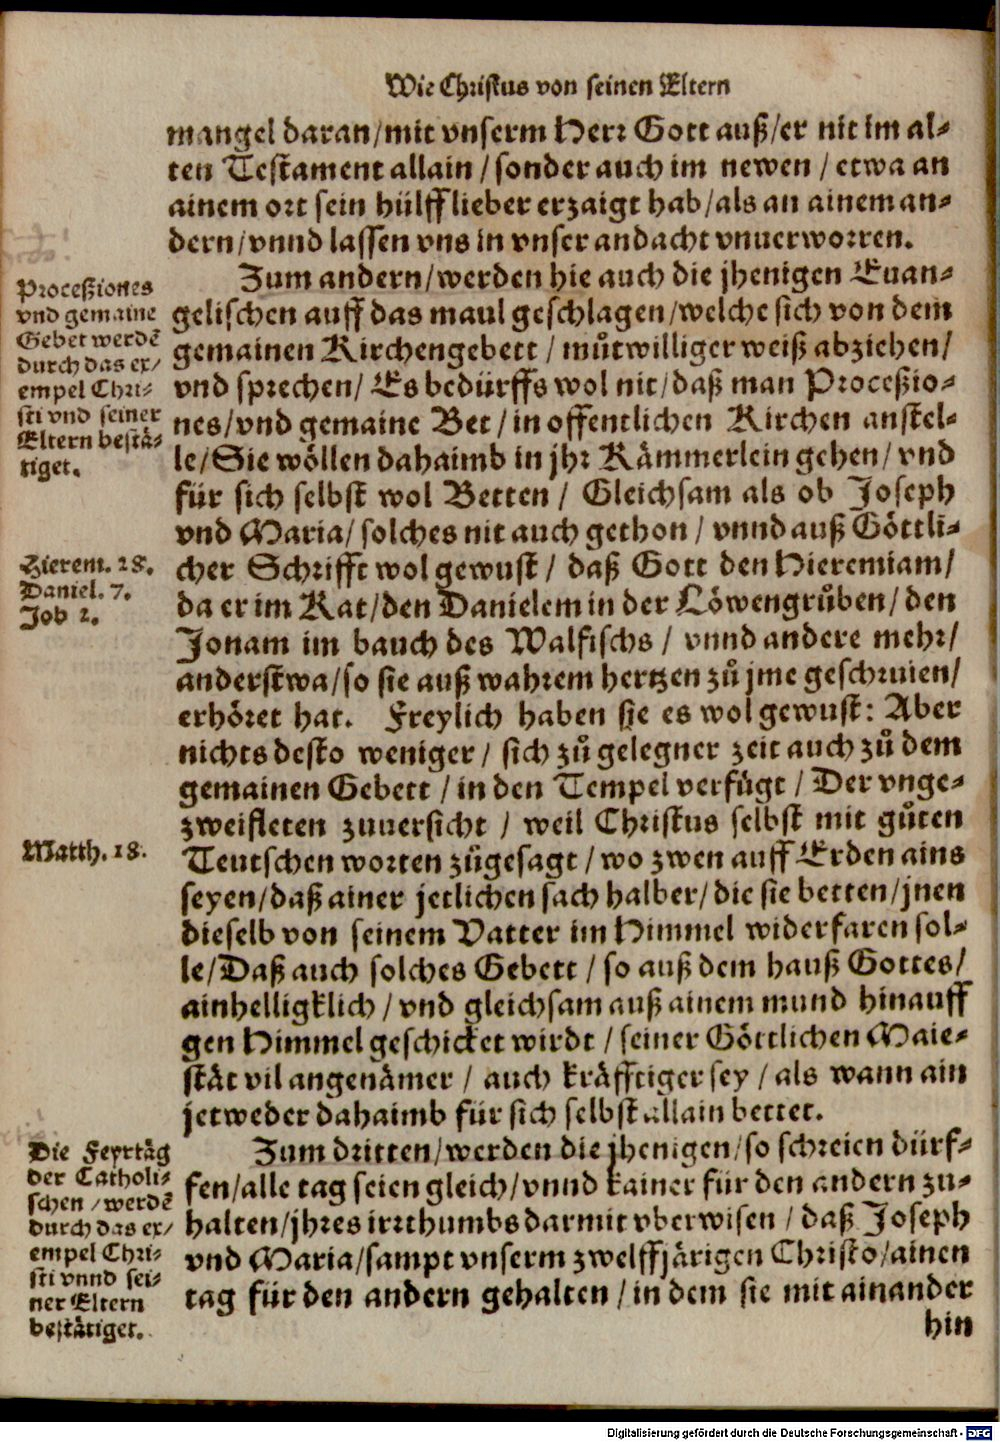 Wie Christus von seinen Eltern
mangel daran/mit vnserm Herr Gott auß/er nit im al-
ten Testament allain/sonder auch im newen/etwa an
ainem ort sein hülff lieber erzaigt hab/als an ainem an-
dern/vnnd lassen vns in vnser andacht vnuerworren.
Zum andern/werden hie auch die jhenigen Euan-
gelischen auff das maul geschlagen/welche sich von dem
gemainen Kirchengebett/můtwilliger weiß abziehen/
vnd sprechen/Es bedürffs wol nit/daß man Proceßio-
nes/vnd gemaine Bet/in offentlichen Kirchen anstel-
le/Sie wöllen dahaimb in jhr Kämmerlein gehen/vnd
für sich selbst wol Betten/Gleichsam als ob Joseph
vnd Maria/solches nit auch gethon/vnnd auß Göttli-
cher Schrifft wol gewust/daß Gott den Hieremiam/
da er im Kat/den Danielem in der Löwengrůben/den
Jonam im bauch des Walfischs/vnnd andere mehr/
anderstwa/so sie auß wahrem hertzen zů jme geschruien/
erhöret hat. Freylich haben sie es wol gewust: Aber
nichts desto weniger/sich zů gelegner zeit auch zů dem
gemainen Gebett/in den Tempel verfügt/Der vnge-
zweifleten zuuersicht/weil Christus selbst mit gůten
Teutschen worten zůgesagt/wo zwen auff Erden ains
seyen/daß ainer jetlichen sach halber/die sie betten/jnen
dieselb von seinem Vatter im Himmel widerfaren sol-
le/Daß auch solches Gebett/so auß dem hauß Gottes/
ainhelligklich/vnd gleichsam auß ainem mund hinauff
gen Himmel geschicket wirdt/seiner Göttlichen Maie-
stät vil angenämer/auch kräfftiger sey/als wann ain
jetweder dahaimb für sich selbst allain bettet.
Zum dritten/werden die jhenigen/so schreien dürf-
fen/alle tag seien gleich/vnnd kainer für den andern zu-
halten/jhres irrthumbs darmit vberwisen/daß Joseph
vnd Maria/sampt vnserm zwelffjärigen Christo/ainen
tag für den andern gehalten/in dem sie mit ainander
hin
Proceßiones
vnd gemaine
Gebet werdē
durch das ex/
empel Chri-
sti vnd seiner
Eltern bestä-
tiget.
Hierem. 28.
Daniel. 7.
Job 2.
Matth. 18.
Die Feyrtäg
der Catholi-
schen/werdē
durch das ex/
empel Chri-
sti vnnd sei-
ner Eltern
bestätiget.
Digitalisierung gefördert durch die Deutsche Forschungsgemeinschaft - DFG